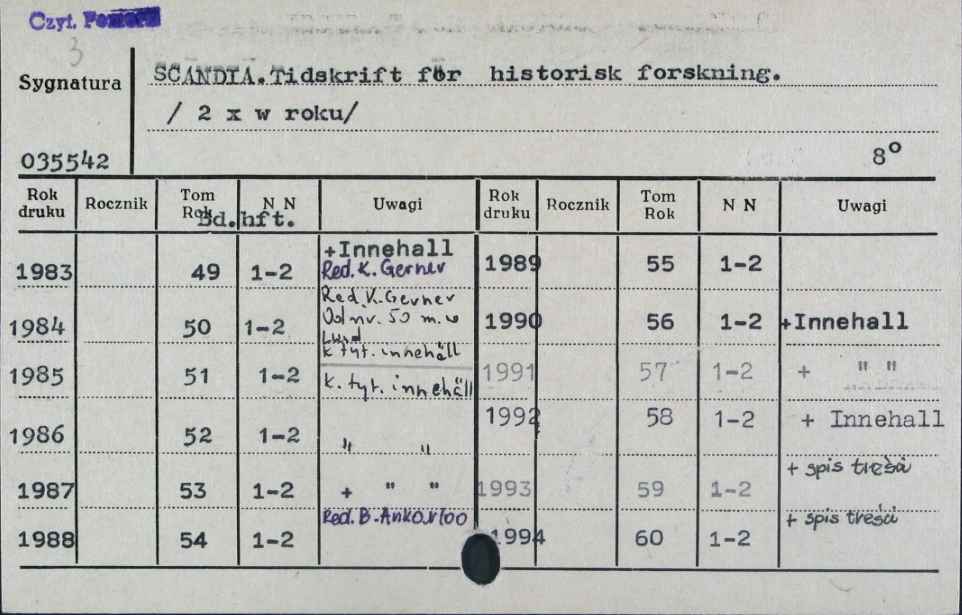 Czyt.
3
Sygnatura
SCANDIA. Tidskrift för historisk forskning.
/ 2 x w roku/
035542
8°
Rok druku Rocznik Tom Rok N N Uwagi Rok druku Rocznik Tom Rok N N Uwagi
Bd. hft.
1983 49 1-2 +Innehall Red. K. Gerner 1989 55 1-2
1984 50 1-2 Red. K. Gerner Od nr. 50 m. w Lund k. tyt. innehäll 1990 56 1-2 +Innehall
1985 51 1-2 k. tyt. innehäll 1991 57 1-2 + " "
1986 52 1-2 " " 1992 58 1-2 + Innehall
1987 53 1-2 + " " 1993 59 1-2 + spis treści
1988 54 1-2 Red. B. Ankarloo 1994 60 1-2 + spis treści